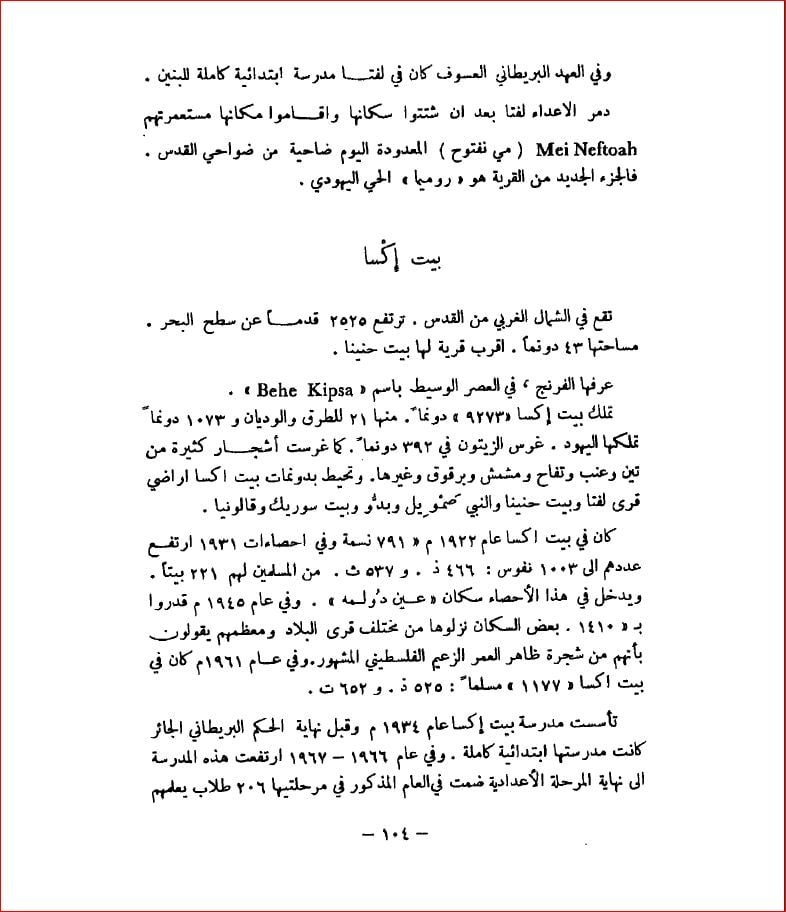 وفي العهد البريطاني العسوف كان في لفتا مدرسة ابتدائية كاملة للبنين .
دمر الاعداء لفتا بعد ان شتتوا سكانها واقاموا مكانها مستعمرتهم
Mei Neftoah ( مي نفتوح ) المعدودة اليوم ضاحية من ضواحي القدس .
فالجزء الجديد من القرية هو « روميا » الحي اليهودي .
بيت إكْسا
تقع في الشمال الغربي من القدس . ترتفع ٢٥٢٥ قدماً عن سطح البحر .
مساحتها ٤٣ دونماً . اقرب قرية لها بيت حنينا .
عرفها الفرنج ، في العصر الوسيط باسم « Behe Kipsa » .
تملك بيت إكسا «٩٢٧٣ » دونماً . منها ٢١ للطرق والوديان و ١٠٧٣ دونماً
تملكها اليهود . غرس الزيتون في ٣٩٢ دونماً . كما غرست أشجار كثيرة من
تين وعنب وتفاح ومشمش وبرقوق وغيرها. وتحيط بدونمات بيت اكسا اراضي
قرى لفتا وبيت حنينا والنبي صموئيل وبدُّو وبيت سوريك وقالونيا .
كان في بيت اكسا عام ١٩٢٢ م « ٧٩١ نسمة وفي احصاءات ١٩٣١ ارتفع
عددهم الى ١٠٠٣ نفوس : ٤٦٦ ذ . و ٥٣٧ ث . من المسلمين لهم ٢٢١ بيتاً .
ويدخل في هذا الأحصاء سكان « عين دُولمه » . وفي عام ١٩٤٥ م قدروا
بـ « ١٤١٠ . بعض السكان نزلوها من مختلف قرى البلاد ومعظمهم يقولون
بأنهم من شجرة ظاهر العمر الزعيم الفلسطيني المشهور.وفي عام ١٩٦١م كان في
بيت اكسا « ١١٧٧ » مسلماً : ٥٢٥ ذ . و ٦٥٢ ت .
تأسست مدرسة بيت إكسا عام ١٩٣٤ م وقبل نهاية الحكم البريطاني الجائر
كانت مدرستها ابتدائية كاملة . وفي عام ١٩٦٦ – ١٩٦٧ ارتفعت هذه المدرسة
الى نهاية المرحلة الأعدادية ضمت في العام المذكور في مرحلتيها ٢٠٦ طلاب يعلمهم
– ١٠٤ –